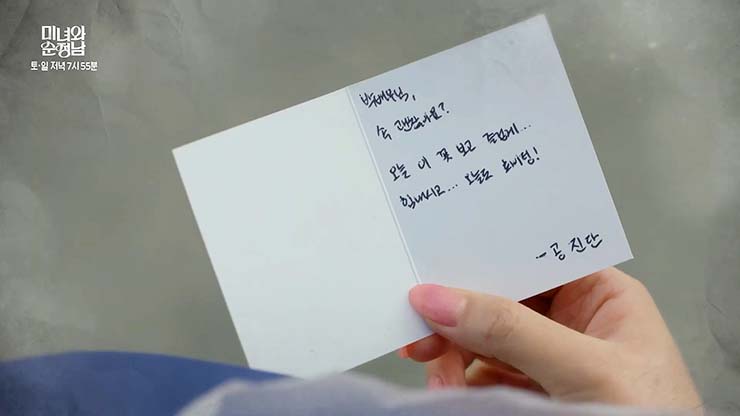 미녀와
순정남
토·일 저녁 7시 55분
박배우님,
속 괜찮나요?
오늘 이 꽃 보고 즐겁게...
힘내시고... 오늘도 화이팅!
- 공 진 단